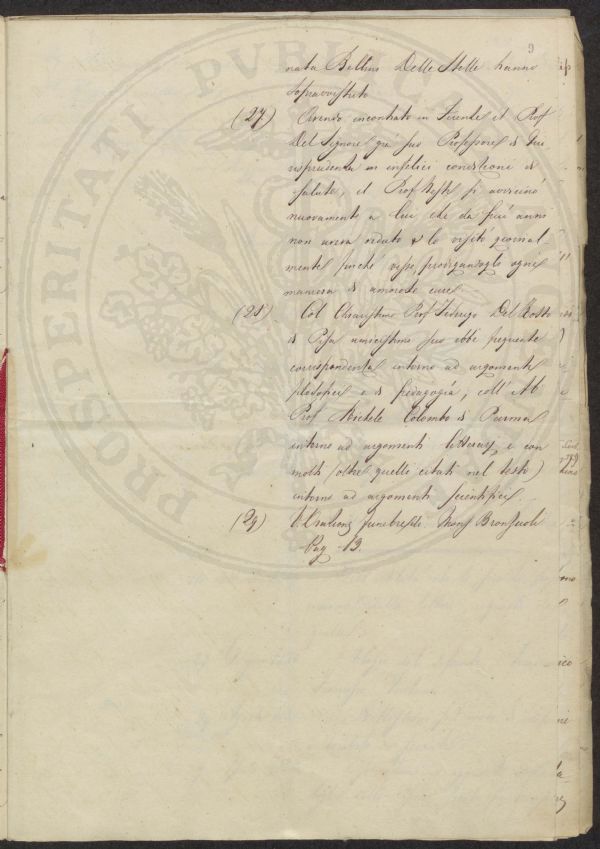 9
nata Bettina Delle Stelle hanno
Sopravvissuto
(27) Avendo incontrato in Firenze il Prof
Del Signore già suo Professore di Giu
risprudenza in infelici condizioni di
salute, il Prof si avvicinò
nuovamente a lui, che da più anni
non aveva veduto e lo visitò giornal-
mente finché visse, prodigandogli ogni
maniera di amorose cure.
(28) Col Chiarissimo Prof Federigo Del Rosso
di Pisa amicissimo suo ebbe frequente
corrispondenza intorno ad argomenti
filosofici e di pedagogia, coll' Ab
Prof Michele Colombo di Parma
intorno ad argomenti letterarj, e con
molti (oltre quelli citati nel testo)
intorno ad argomenti scientifici.
(29) V. Orazione funebre Mons Bronzuoli
Pag. 13.
PROSPERITATI PVBLICA